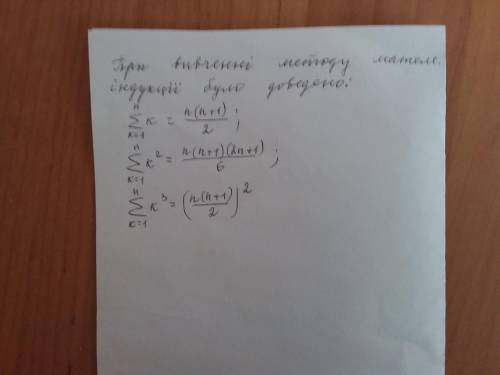 При вивченні методу матем.
індукції було доведено:
∑_{k=1}^{n} k = n(n+1)/2 ;
∑_{k=1}^{n} k² = n(n+1)(2n+1)/6 ;
∑_{k=1}^{n} k³ = (n(n+1)/2)²